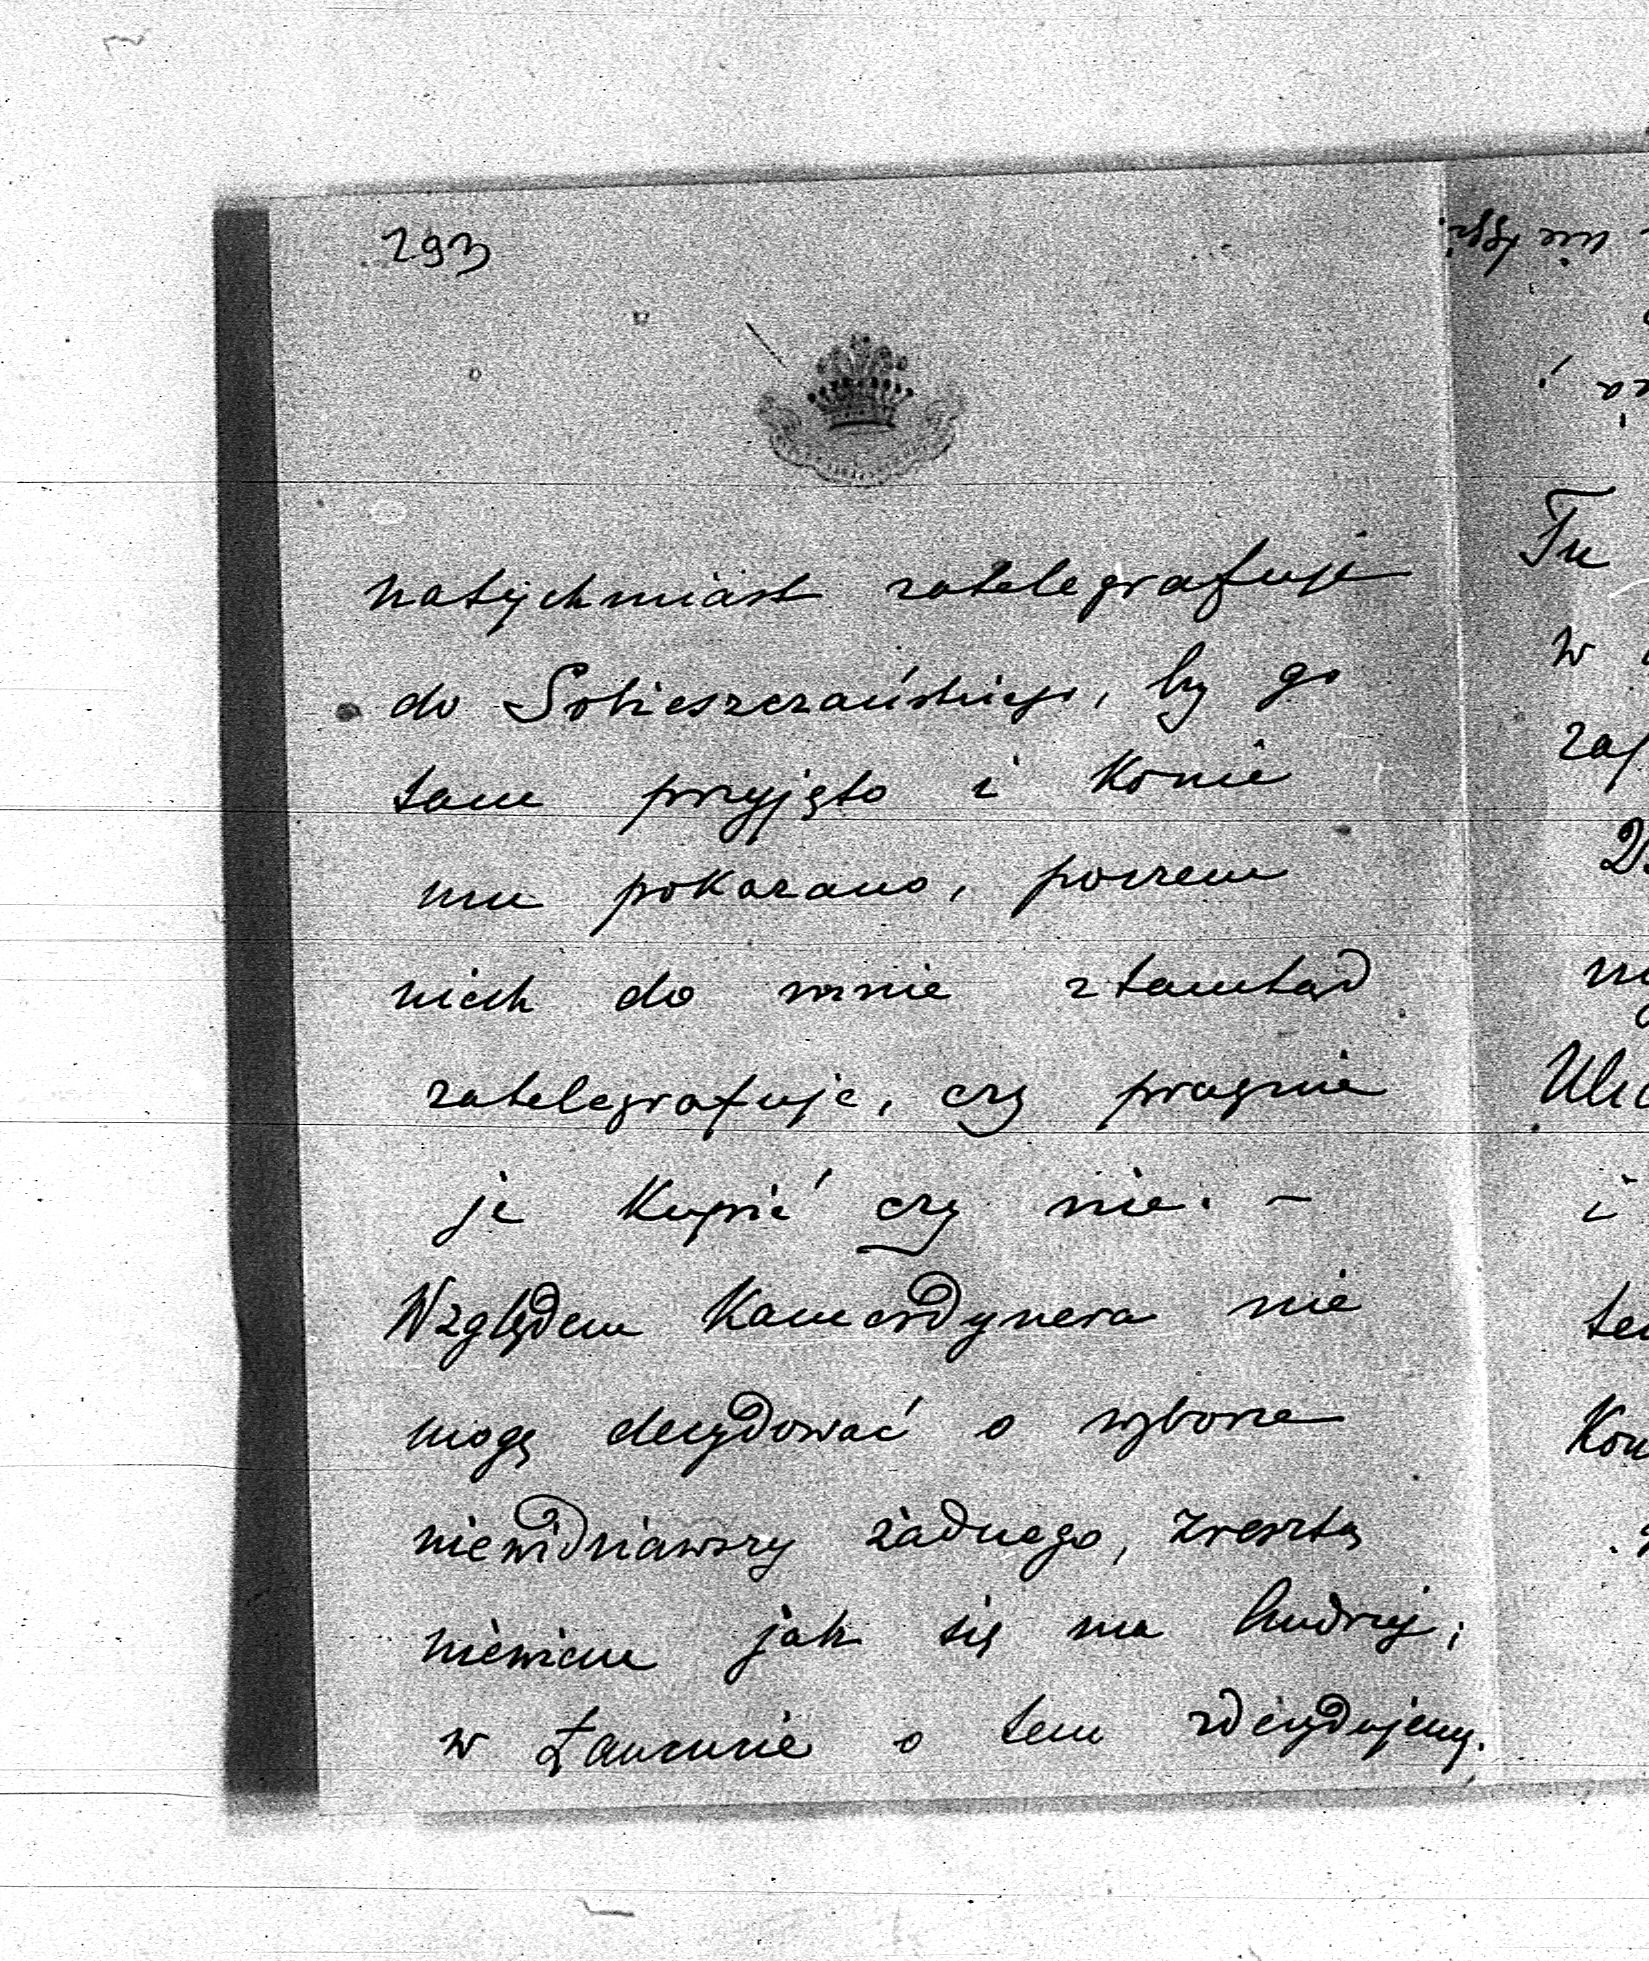 293
natychmiast zatelegrafuję
do Sobieszczańskiego, by go
tam przyjęto i konie
mu pokazano, poczem
niech do mnie ztamtąd
zatelegrafuje, czy pragnie
je kupić czy nie. –
Względem Kamerdynera nie
mogę decydować o wyborze
niewidziawszy żadnego, zresztą
niewiem jak się ma Andrzej;
w Łańcucie o tem zdecydujemy.
nie
Tu
w
i